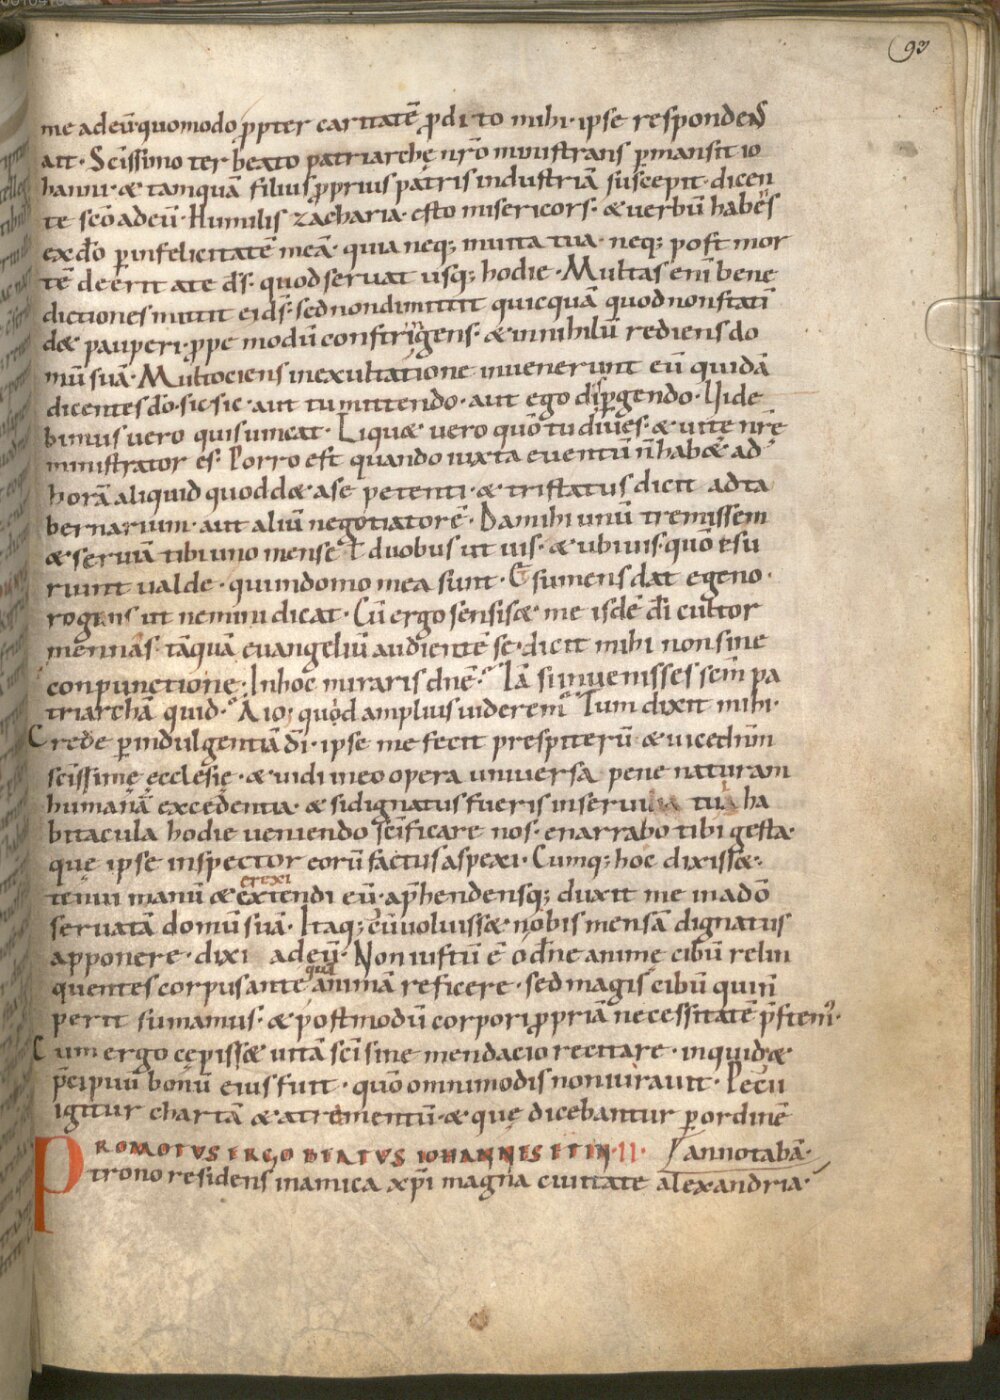 93
me adeū·quomodo ꝓpter caritatē ꝓdi to mihi·ipse respondens
ait· Scīssimo ter beato patriarchę nrō ministrans ꝑmansit io
hanni·& tamquā filius ꝓprius patris industriā suscepit·dicen
te scō adeū· Humilis zacharia· esto misericors· & verbū habes
ex dō ꝑ infelicitatē meā· quia neq; in vita tua· neq; post mor
tē deerit a te ds̄· quod servat usq; hodie· Multas enī bene
dictiones mittit ei ds̄· sed non dimittit quicquā quod non statī
d& pauperi·ꝓpe modū confringens· & in nihilū rediens do
mū suā· Multociens in exultatione invenerunt eū quidā
dicentes dō·sic sic·aut tu mittendo·aut ego dispgendo· Vide
bimus vero quis vincat· Liqu& vero quō tu dives· & vitę nrę
ministrator es· Porro est quando iuxta eventū n̄ hab& ad
horā aliquid quod d& a se petenti·& tristatus dicit ad ta
bernarium·aut aliū negotiatorē· Da mihi unū tremissem
& serviā tibi uno mense ł duobus ut vis·& ubi vis·quō esu
riunt valde·qui in domo mea sunt· Et sumens dat egeno·
rogans ut nemini dicat· Cū ergo sensiss& me isdē dī cultor
mennas· tāquā evangeliū audientē se·dicit mihi non sine
conpunctione· In hoc miraris dn̄e· Iā si invenisses scm̄ pa
triarchā quid· Aio; quod amplius viderem Tum dixit mihi·
Crede ꝑ indulgentiā dī· ipse me fecit prespiterū & vicedn̄m
scīssimę ecclesię·& vidi in eo opera universa pene naturam
humanā excedentia·& si dignatus fueris in servi tua ha
bitacula hodie veniendo scīficare nos· enarrabo tibi gesta·
quę ipse inspector eorū factus aspexi· Cumq; hoc dixiss&·
erexi
tenui manū & extendi eū·ap̄hendensq; duxit me in a dō
servatā domū suā· Itaq; cū voluiss& nobis mensā dignatus
apponere·dixi adeū· Non iustū ē o dn̄e animę cibū relin
quā
quentes corpus ante animā reficere·sed magis cibū qui n̄
perit sumamus·& postmodū corpori ꝓpriā necessitatē p̄stem·
Cum ergo cępiss& vitā scī sine mendacio recitare· inquid&
p̄cipuū bonū eius fuit·quō omnimodis non iuravit· Pecii
igitur chartā & atrementū·& quę dicebantur ꝑ ordinē
PROMOTVS ERGO BEATVS IOHANNES ET IN·II· annotabā·
trono residens in amica xp̄i magna civitate alexandria·